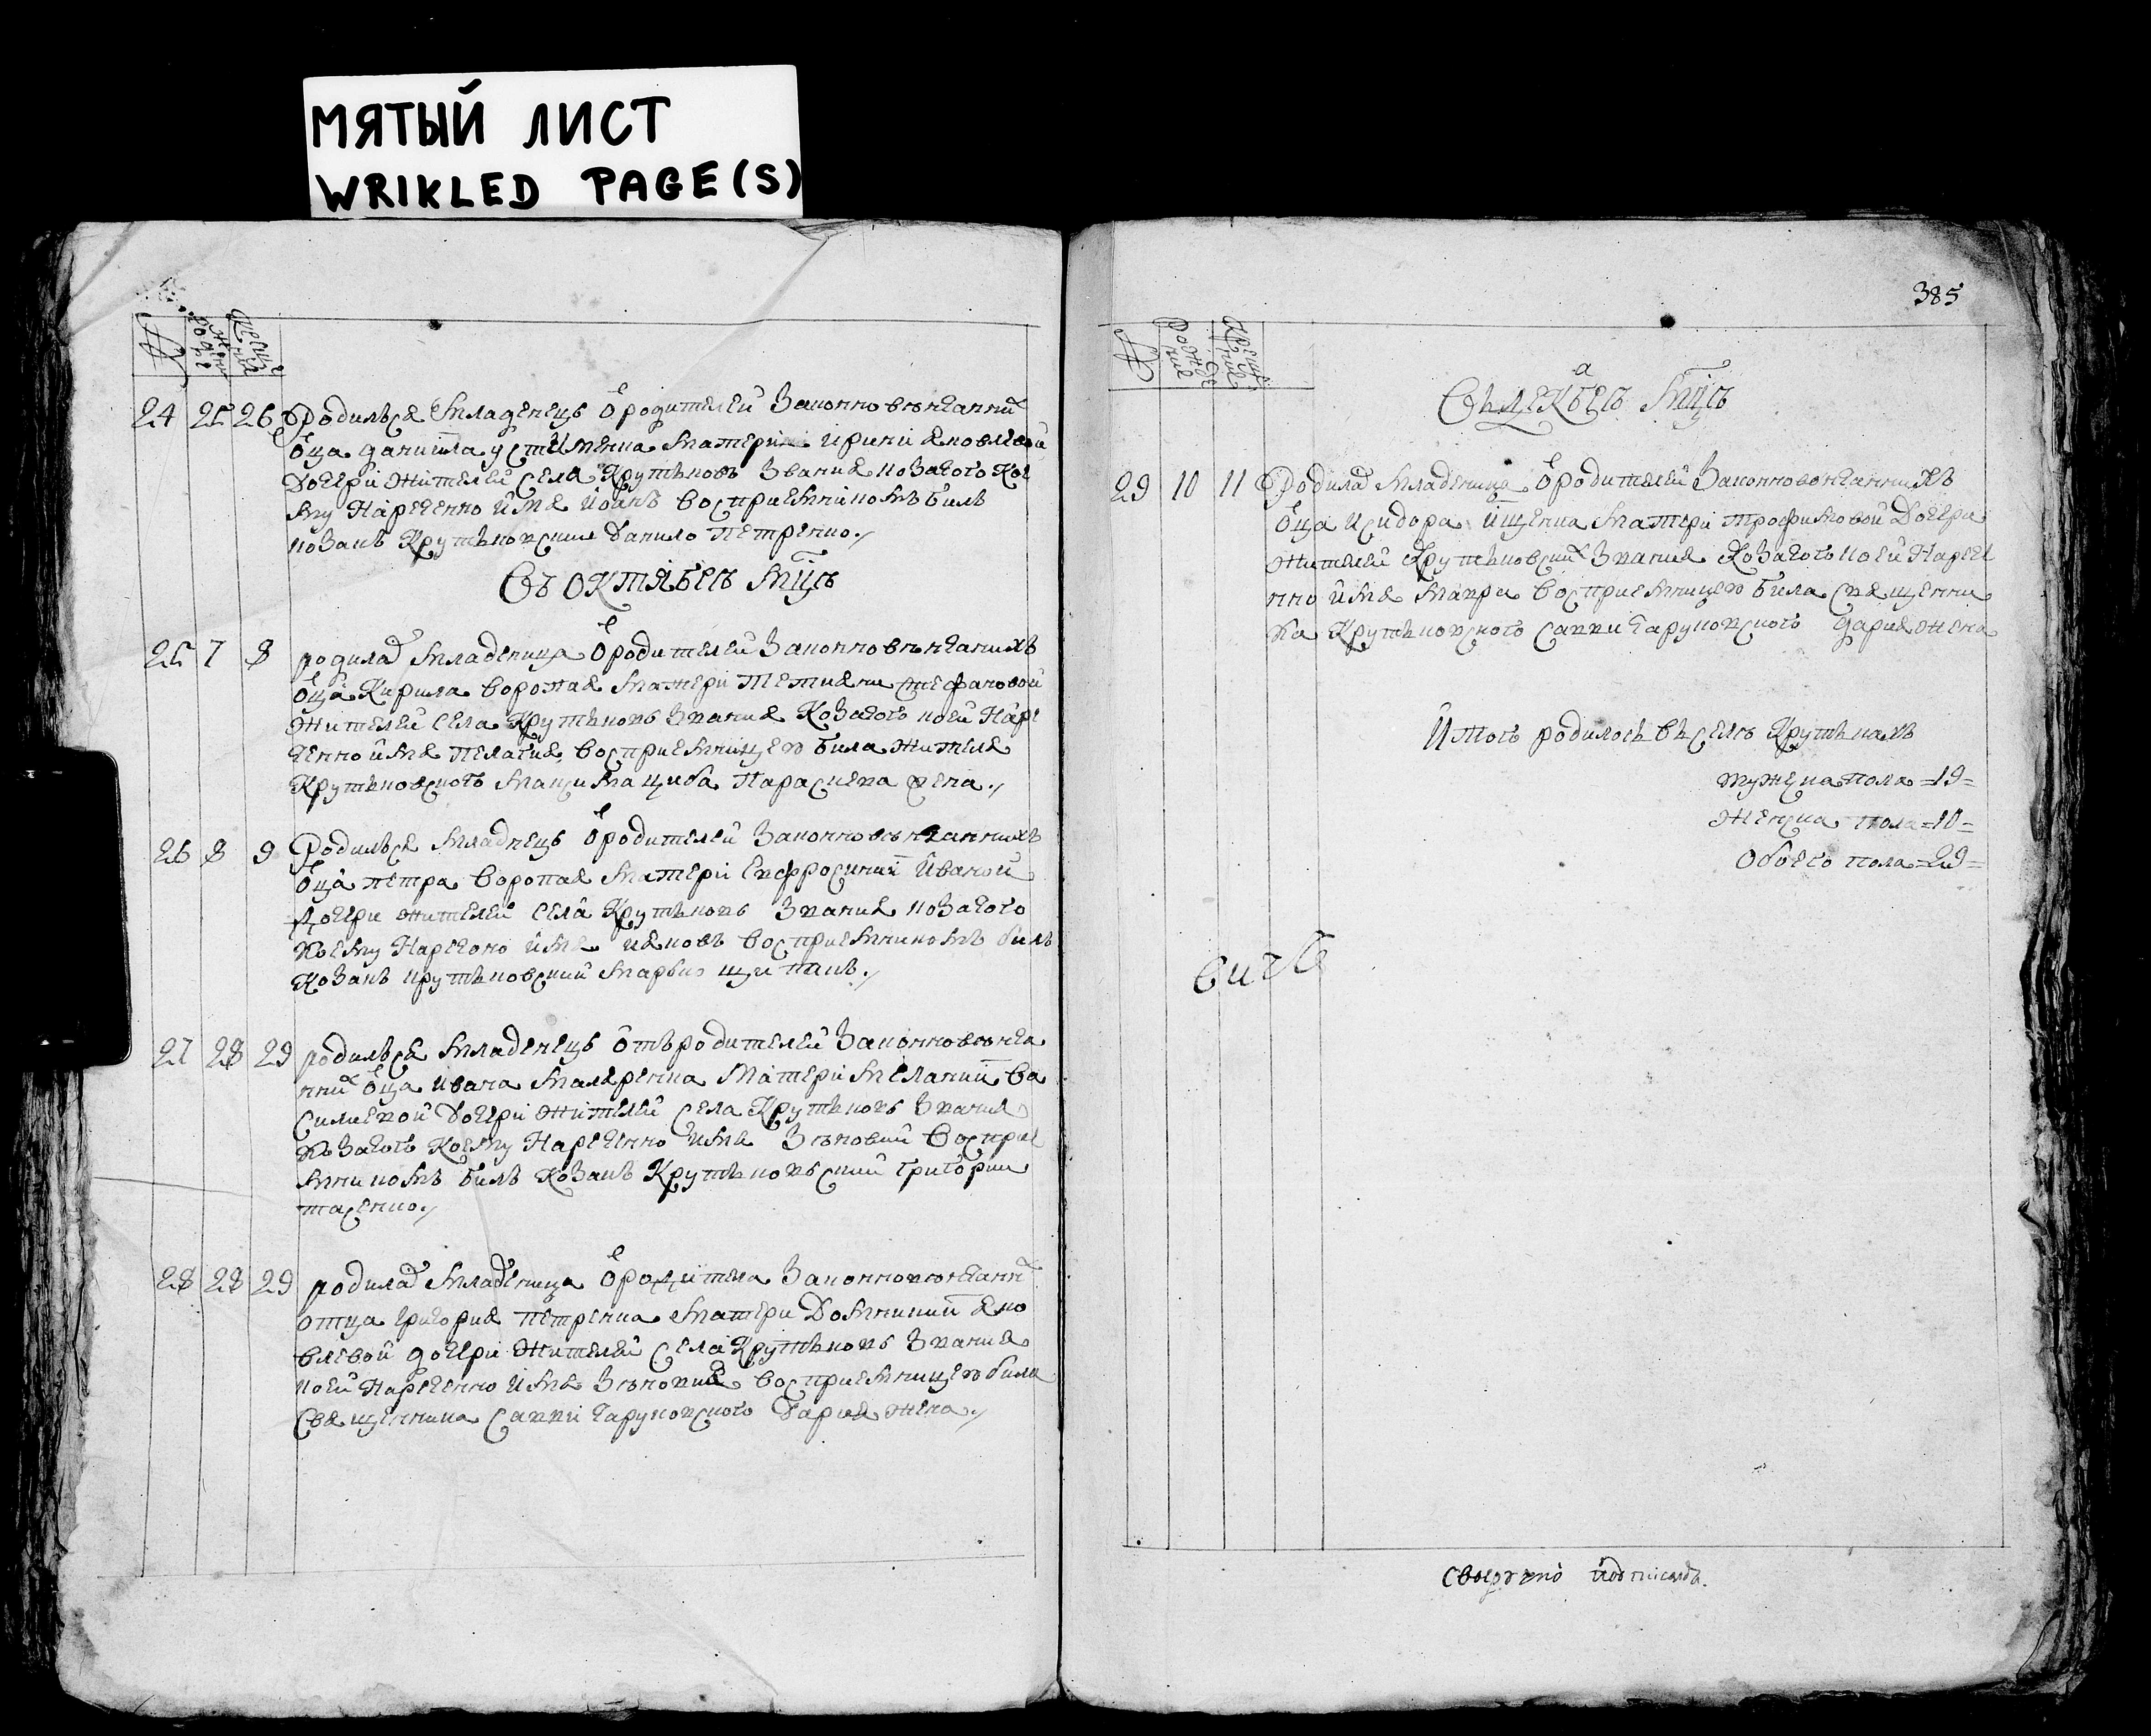 МЯТЫЙ ЛИСТ
WRIKLED PAGE(S)
№ рожденіе крещеніе
24 25 26 Родилъся младенецъ ѿ родителей законновѣнчаних
ѿца даниила устименка матери ирини яковлевой
дочери жителей села Крутѣковъ звания козачого кое
му наречено имя иоанъ восприемникомъ билъ
козакъ крутѣковский данило петренко ./
Въ октябрѣ мцѣ
25 7 8 родилас младеница ѿ родителей законновѣнчанихъ
ѿца Кирила воропая матери тетияни стефановой
жителей села Крутѣковъ звания козачого коей наре
ченно имя пелагия, восприемницею била жителя
Крутѣковского максима циба параскева жена ./
26 8 9 Родилъся младнецъ ѿ родителей законновѣнчаннихъ
ѿца петра воропая матери евфросинии иваной
дочери жителей села Крутѣковъ звания козачого
коему наречоно имя ияковъ восприемникомъ билъ
козакъ крутѣковский марко щипакъ ./
27 28 29 родилъся младенецъ отъ родителей законновѣнча
нних ѿца ивана маляренка матери мелании ва
силиевой дочери жителей села Крутѣковъ звания
козачого коему нареченно имя зѣновий восприе
мникомъ билъ козакъ Крутѣковъский григорий
тасенко ./
28 28 29 родилас младеница ѿ родителя законновѣнчанн
отца григория петренка матери домникии яко
влевой дочери жителей села Крутѣковъ звания
коей нареченно имя зѣновия восприемницею била
священика саввы гаруковского дария жена ./
385
№ рожде ние креще ние
Въ декабрѣ мцѣ
29 10 11 Родилас младеница ѿ родителей законновѣнчаннихъ
ѿца исидора ищенка матери трофимовой дочери
жителей крутѣковских звания козачого коей нарече
нно имя макри восприемницею била священни
ка крутѣковского саввы гаруковского дария жена
Итого родилось въ селѣ Крутѣкахъ
мужеска пола =19=
женска пола =10=
обоего пола =29=